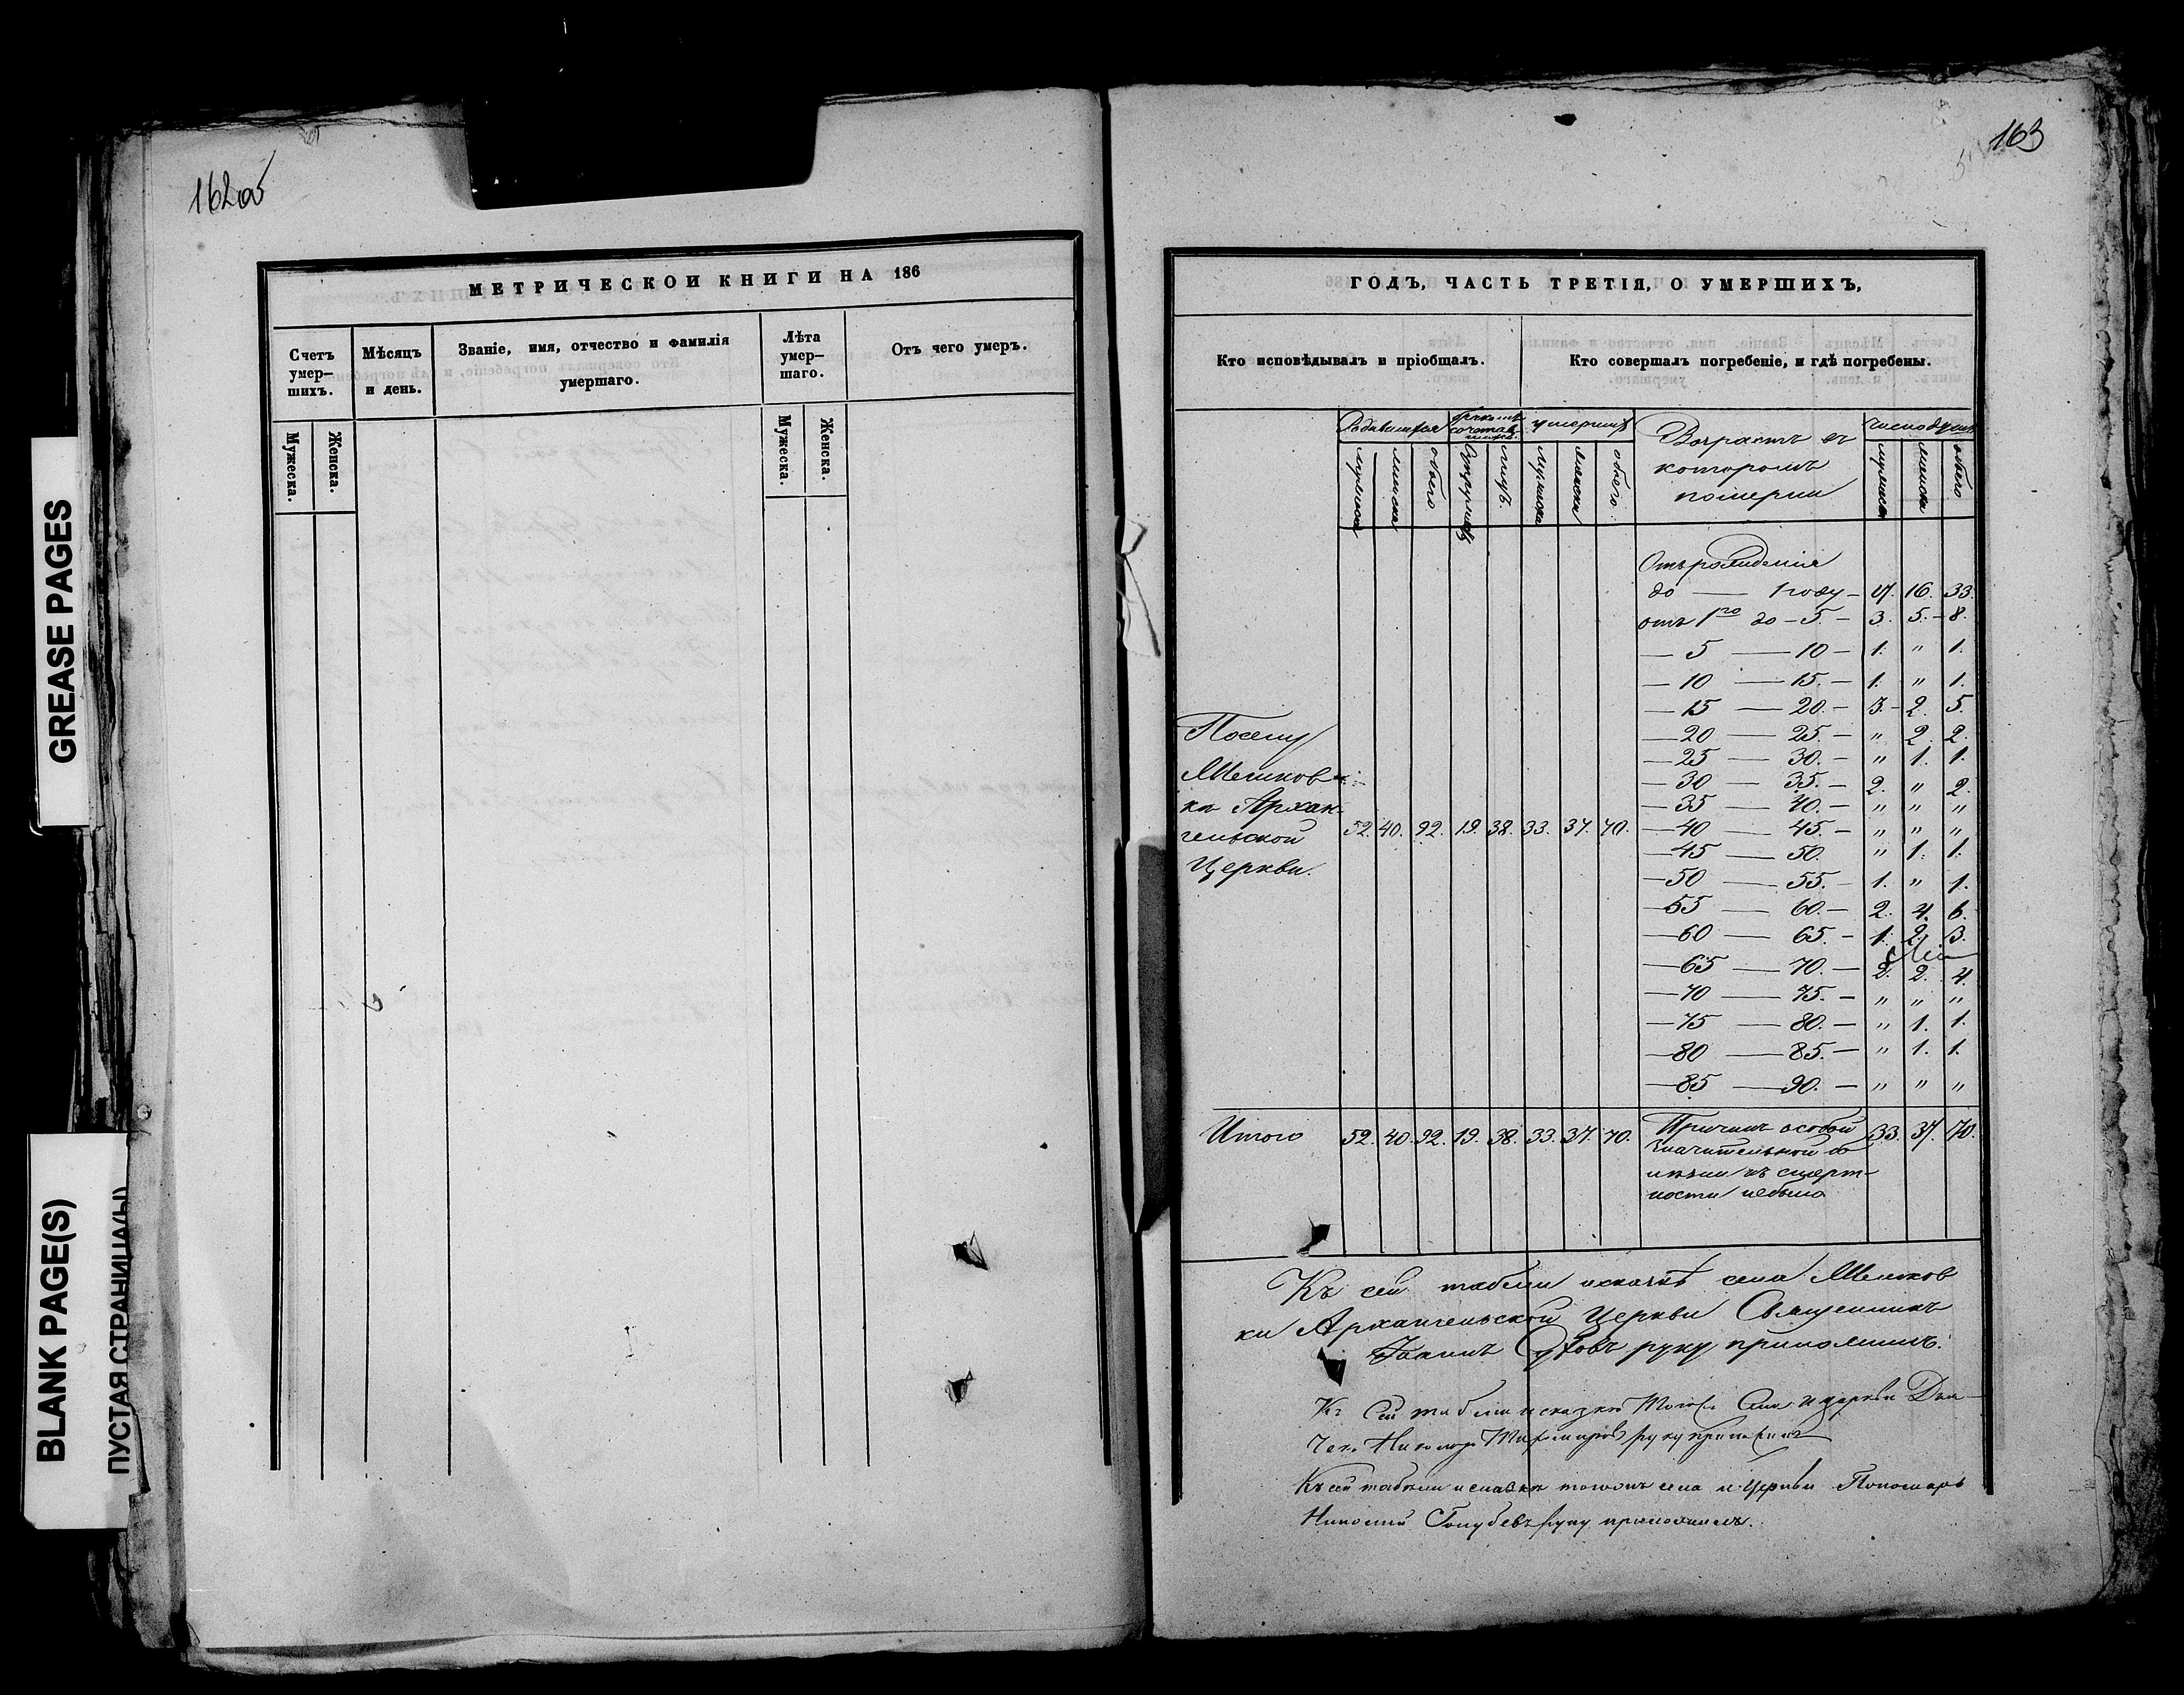 GREASE PAGES
BLANK PAGE(S)
ПУСТАЯ СТРАНИЦА(Ы)
162об
МЕТРИЧЕСКОЙ КНИГИ НА 186
Счетъ умер-
шихъ.
Мѣсяцъ
и день.
Званіе, имя, отчество и фамилія
умершаго.
Лѣта
умер-
шаго.
Отъ чего умеръ.
Мужеска.
Женска.
Мужеска.
Женска.
163
ГОДЪ, ЧАСТЬ ТРЕТІЯ, О УМЕРШИХЪ,
Кто исповѣдывалъ и пріобщалъ.
Кто совершалъ погребеніе, и гдѣ погребены.
Родившихся
бракомъ
сочетав
шихся
умершихъ
Возрастъ въ
которомъ
померли
Число душъ
мужеска
женска
обоего
Супружествъ
лицъ.
мужеска
женска
обоего
мужеска
женска
обоего
Отъ рожденія
до — 1 году — 17. 16. 33.
отъ 1го до — 5. — 3. 5. — 8.
— 5 — 10 — 1. " 1.
— 10 — 15. — 1. " 1.
— 15 — 20. — 3. — 2. 5.
— 20 — 25. — " 2. 2.
— 25 — 30. — " 1. 1.
— 30 — 35. — 2. " 2.
— 35 — 40. — " " "
— 40 — 45. — " " "
— 45 — 50. " 1. 1.
— 50 — 55. — 1. " 1.
— 55 — 60. — 2. 4. 6.
— 60 — 65. — 1. 2. 3.
— 65 — 70. — 2. 2. 4.
— 70 — 75. — " " "
— 75 — 80. — " 1. 1.
— 80 — 85. — " 1. 1.
— 85 — 90. — " " "
По селу
Мешков-
ки Архан-
гельской
Церкви.
52. 40. 92. 19. 38. 33. 37. 70.
Итого 52. 40. 92. 19. 38. 33. 37. 70.
Причинъ особой
значительной бо
лѣзни къ смерт-
ности небыло
33. 37. 70.
Къ сей табели и сказкѣ села Мешков
ки Архангельской Церкви Священникъ
Іоаннъ руку приложилъ.
Къ сей табели и сказкѣ того села и церкви Дья-
чекъ руку приложилъ
Къ сей табели и сказкѣ тогожъ села и Церкви Пономарь
Николай Голубевъ руку приложилъ.